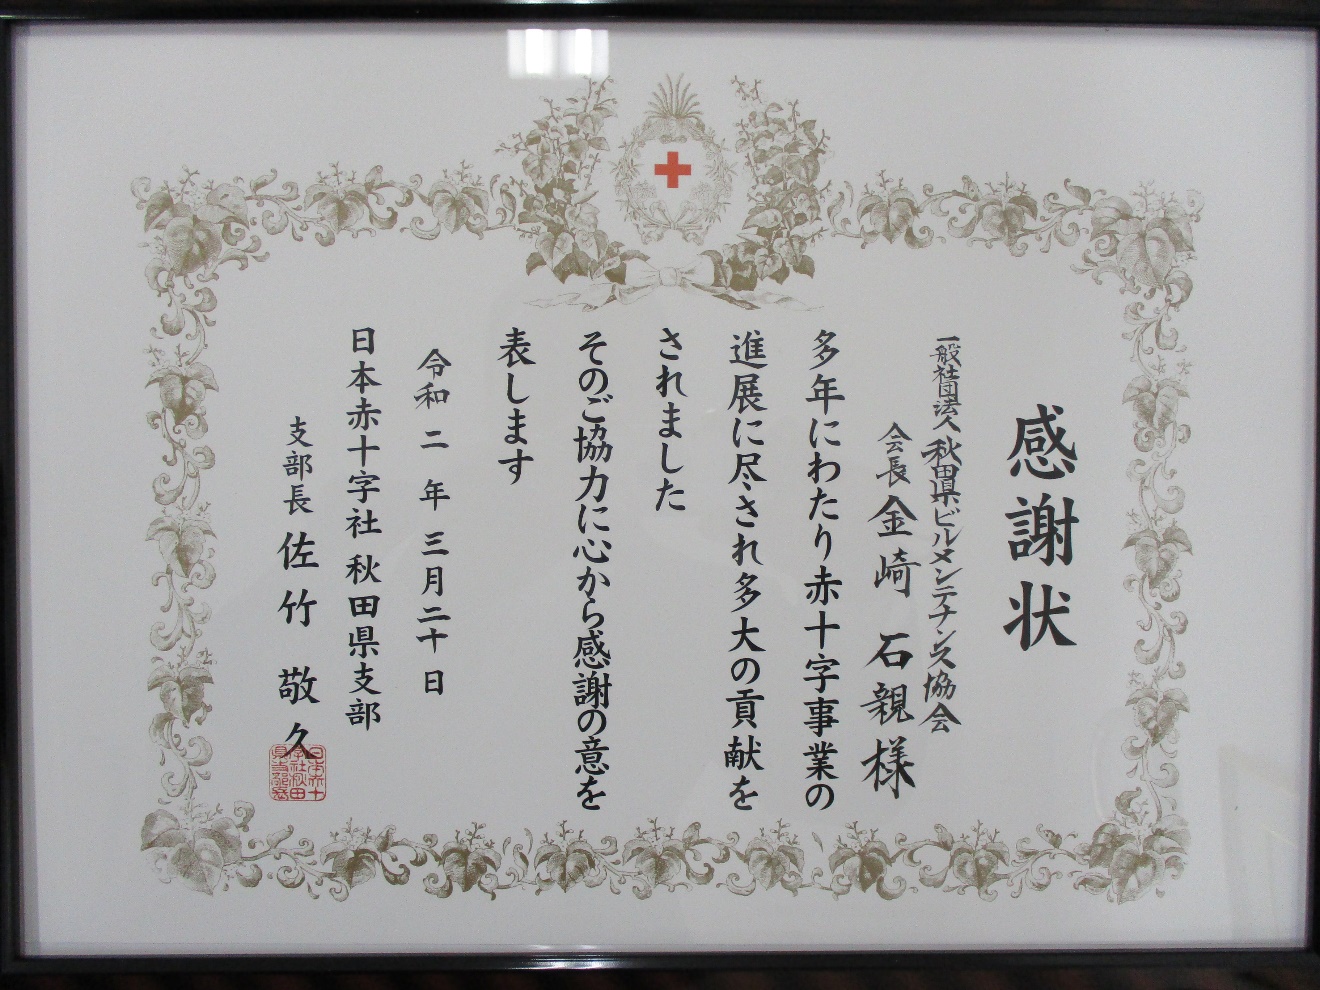 感謝状
一般社団法人秋田県ビルメンテナンス協会
会長 金崎 石親様
多年にわたり赤十字事業の
進展に尽され多大の貢献を
されました
そのご協力に心から感謝の意を
表します
令和二年三月二十日
日本赤十字社秋田県支部
支部長 佐竹敬久